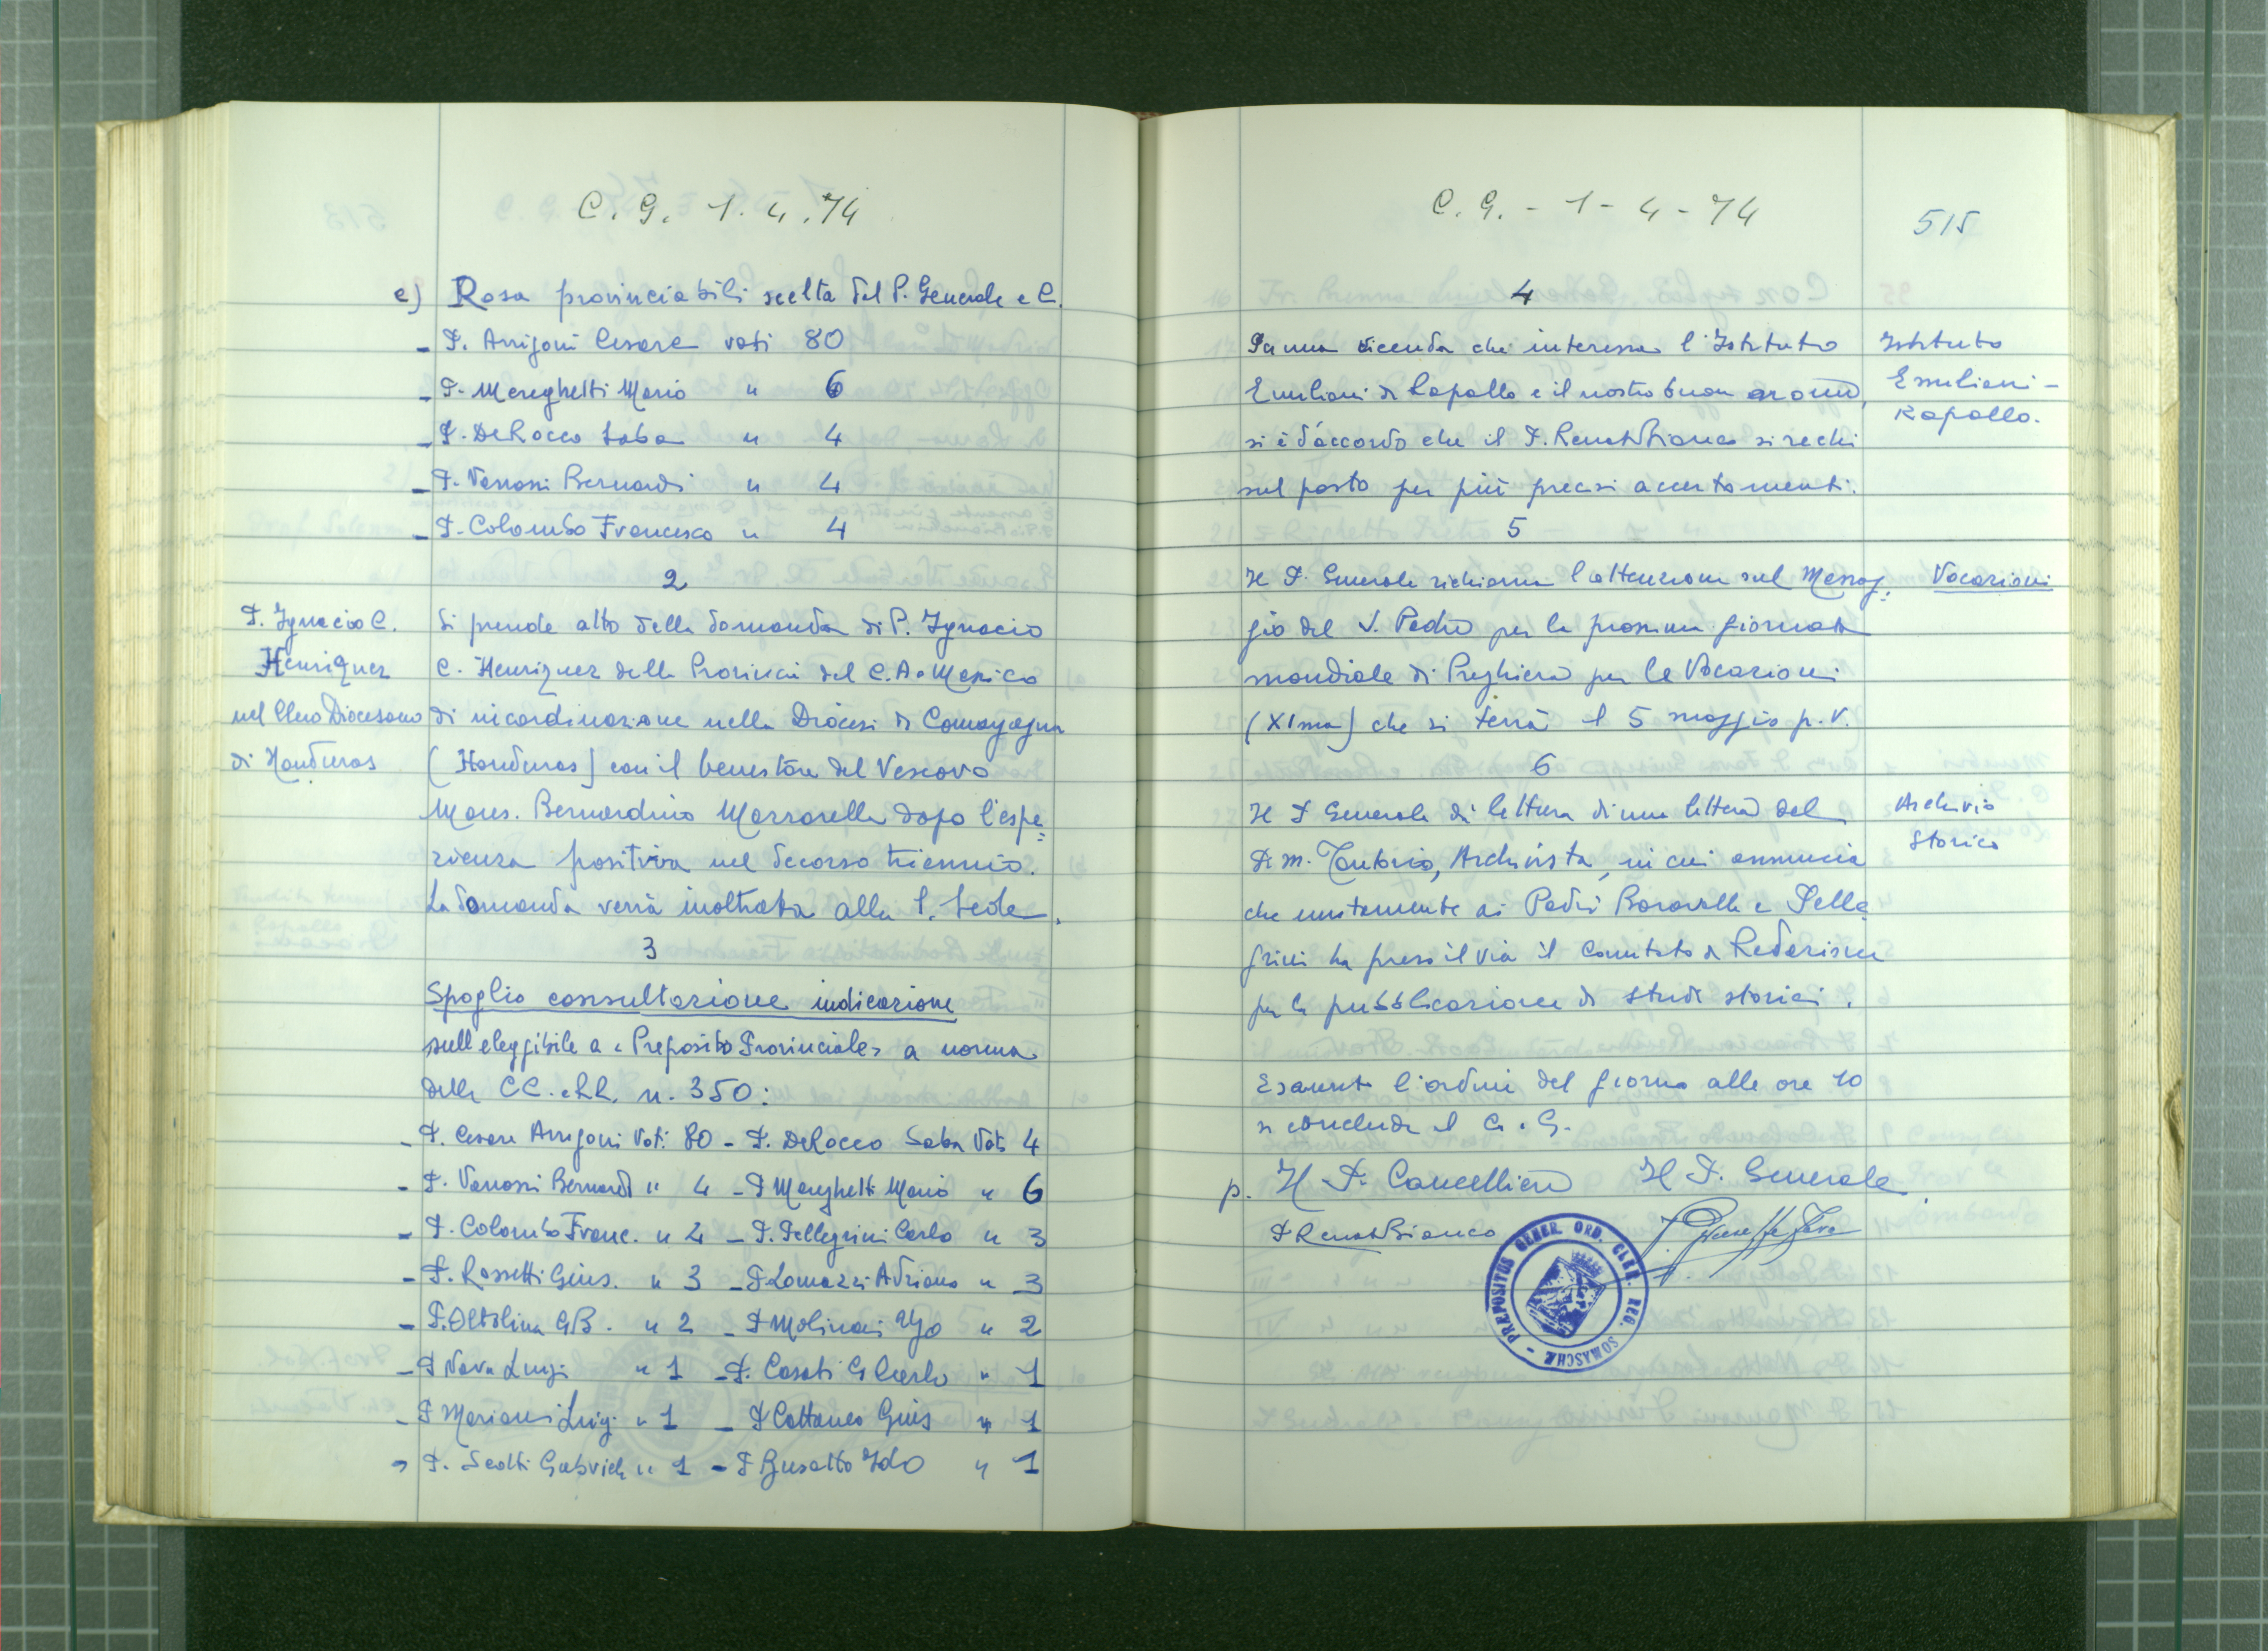 C. G. 1. 4. 74
e) Rosa provinciabili scelta del P. Generale e C.
- P. Arrigoni Cesare voti 80
- P. Mereghetti Mario " 6
- P. DeRocco Saba " 4
- P. Vanossi Bernardi " 4
- P. Colombo Francesco " 4
2
P. Ignacio C.
Henriquez
nel Clero Diocesano
di Honduras
Si prende atto della domanda di P. Ignacio
C. Henriquez della Provincia del C.A. e Messico
di incardinazione nella Diocesi di Comayagua
(Honduras) con il benestare del Vescovo
Mons. Bernardino Mazzarella dopo l'espe=
rienza positiva nel decorso triennio.
La domanda verrà inoltrata alla S. Sede.
3
Spoglio consultazione indicazione
sull eleggibile a "Preposito Provinciale" a norma
delle CC. e RR. n. 350:
- P. Cesare Arrigoni Voti 80 - P. DeRocco Saba Voti 4
- P. Vanossi Bernardi " 4 - P Mereghetti Mario " 6
- P. Colombo Franc. " 4 - P. Pellegrini Carlo " 3
- P. Rossetti Gius. " 3 - P Lomazzi Adriano " 3
- P. Oltolina GB. " 2 - P Molinari Ugo " 2
- P Nava Luigi " 1 - P. Casati G Carlo " 1
- P Mariani Luigi " 1 - P Cattaneo Gius " 1
- P. Scotti Gabriele " 1 - P Busatto Ido " 1
C. G. - 1 - 4 - 74
515
4
Istituto
Emiliani -
Rapallo.
Su una vicenda che interessa l'Istituto
Emiliani di Rapallo e il nostro buon nome,
si è d'accordo che il P. Renato Bianco si rechi
sul posto per più precisi accertamenti.
5
Vocazioni
Il P. Generale richiama l'attenzione sul Messag=
gio del S. Padre per la prossima giornata
mondiale di Preghiera per le Vocazioni
(XIma) che si terrà il 5 maggio p. v.
6
Archivio
Storico
Il P Generale dà lettura di una lettera del
P. M. Tentorio, Archivista, in cui annuncia
che unitamente ai Padri Boravalle e Pelle
grini ha preso il via il Comitato di Redazione
per la pubblicazione di studi storici.
Esaurito l'ordine del giorno alle ore 10
si conclude il C. G.
p. Il P. Cancelliere Il P. Generale
P Renato Bianco P. Giuseppe Fava
PRÆPOSITUS GENER. ORD. CLER. REG. SOMASCHÆ